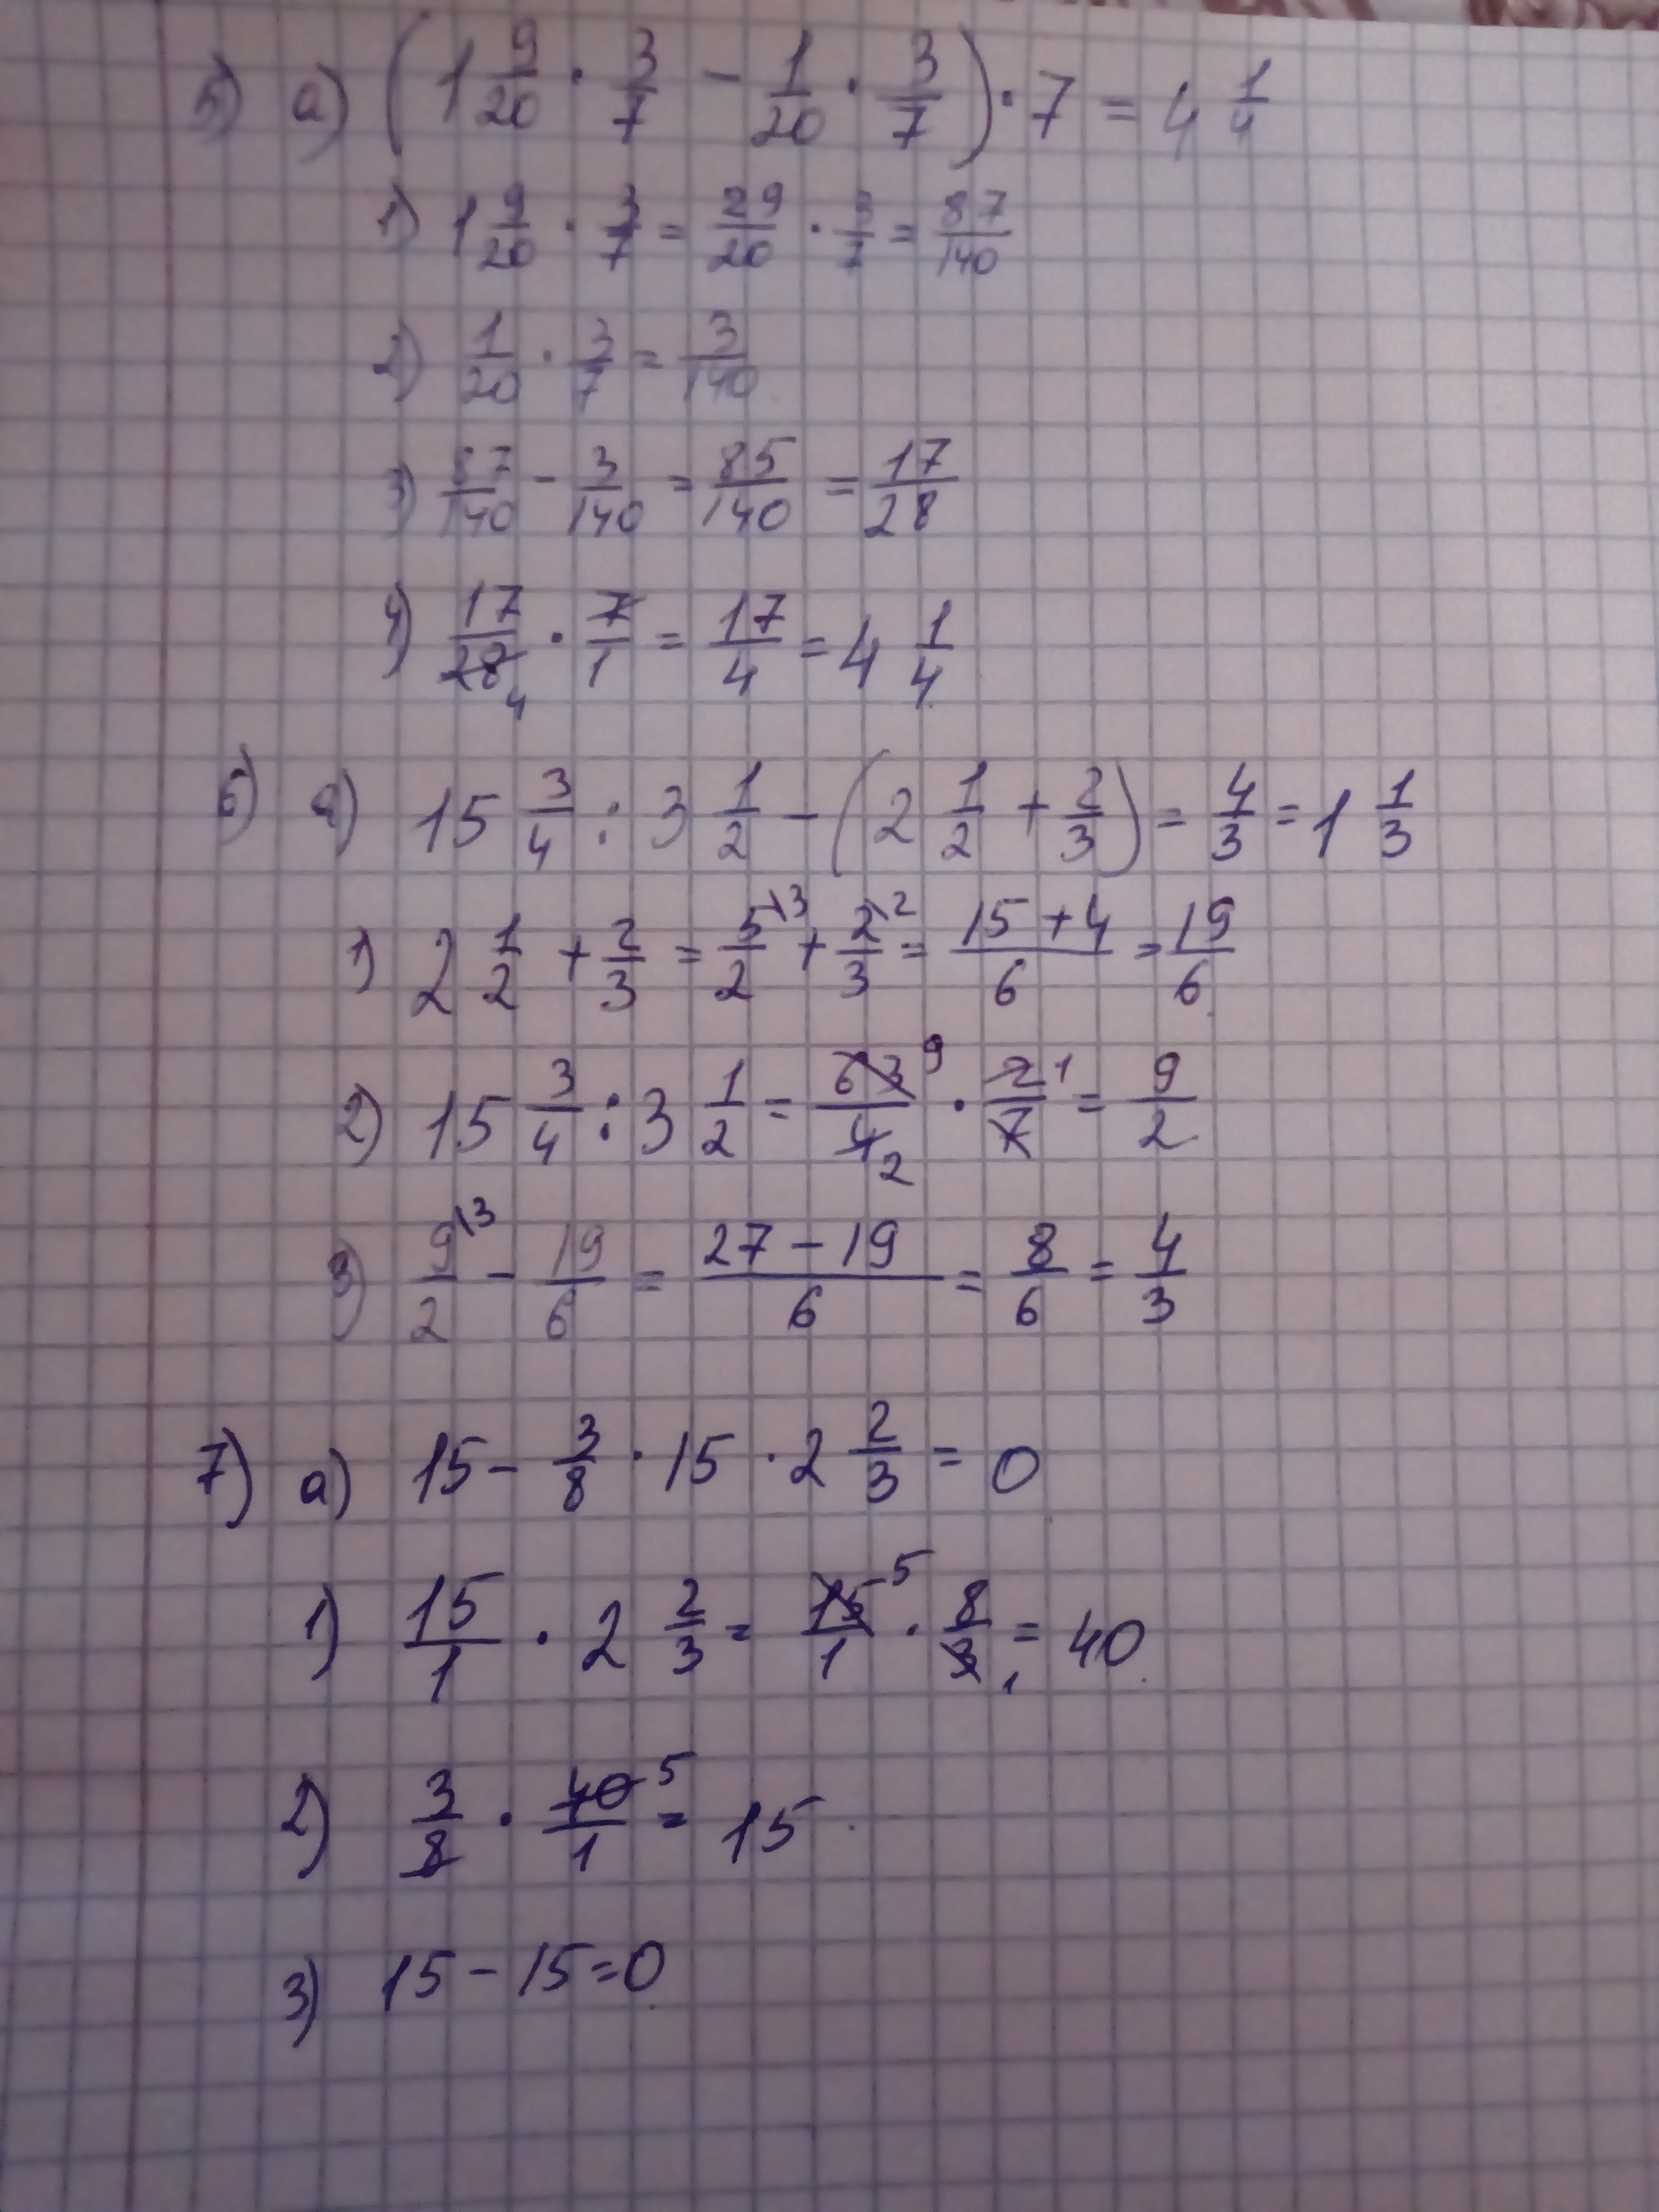 5) а) (1 9/20 · 3/7 - 1/20 · 3/7) · 7 = 4 1/4
1) 1 9/20 · 3/7 = 29/20 · 3/7 = 87/140
2) 1/20 · 3/7 = 3/140
3) 87/140 - 3/140 = 85/140 = 17/28
4) 17/28 4 · 7/1 = 17/4 = 4 1/4
6) а) 15 3/4 : 3 1/2 - (2 1/2 + 2/3) = 4/3 = 1 1/3
1) 2 1/2 + 2/3 = 5\3/2 + 2\2/3 = 15+4/6 = 19/6
2) 15 3/4 : 3 1/2 = 63 9/4 2 · 2 1/7 = 9/2
3) 9\3/2 - 19/6 = 27-19/6 = 8/6 = 4/3
7) а) 15 - 3/8 · 15 · 2 2/3 = 0
1) 15/1 · 2 2/3 = 15 5/1 · 8/3 1 = 40
2) 3/8 · 40 5/1 = 15
3) 15 - 15 = 0